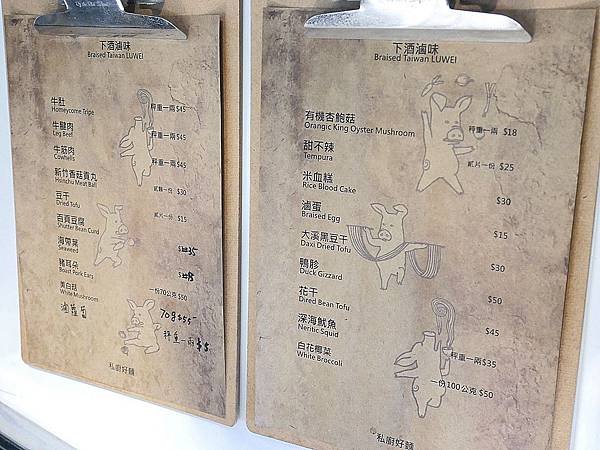 下酒滷味
Braised Taiwan LUWEI
牛肚
Honeycome Tripe
秤重一兩 $45
牛腱肉
Leg Beef
秤重一兩 $45
牛筋肉
Cowhells
秤重一兩 $45
新竹香菇貢丸
Hsinchu Meat Ball
貳顆一份 $30
豆干
Dried Tofu
貳片一份 $15
百頁豆腐
Shutter Bean Curd
$35
海帶葉
Seaweed
豬耳朵
Boast Pork Ears
美白菇
White Mushroom
一份70公克 $50
70g $55
秤重一兩 $5
私廚好麵
下酒滷味
Braised Taiwan LUWEI
有機杏鮑菇
Orangic King Oyster Mushroom
秤重一兩 $18
甜不辣
Tempura
貳片一份 $25
米血糕
Rice Blood Cake
$30
滷蛋
Braised Egg
$15
大溪黑豆干
Daxi Dried Tofu
$30
鴨胗
Duck Gizzard
$50
花干
Dired Bean Tofu
$45
深海魷魚
Neritic Squid
秤重一兩 $35
白花椰菜
White Broccoli
一份100公克 $50
私廚好麵